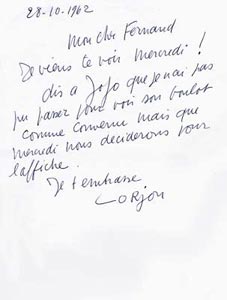 28-10-1962
Mon cher Fernand
Je viens te voir mercredi !
dis a Jojo que je nai pas
pu passer pour voir son boulot
comme convenu mais que
mercredi nous deciderons pour
laffiche.
Je t'embrasse
LORJOU